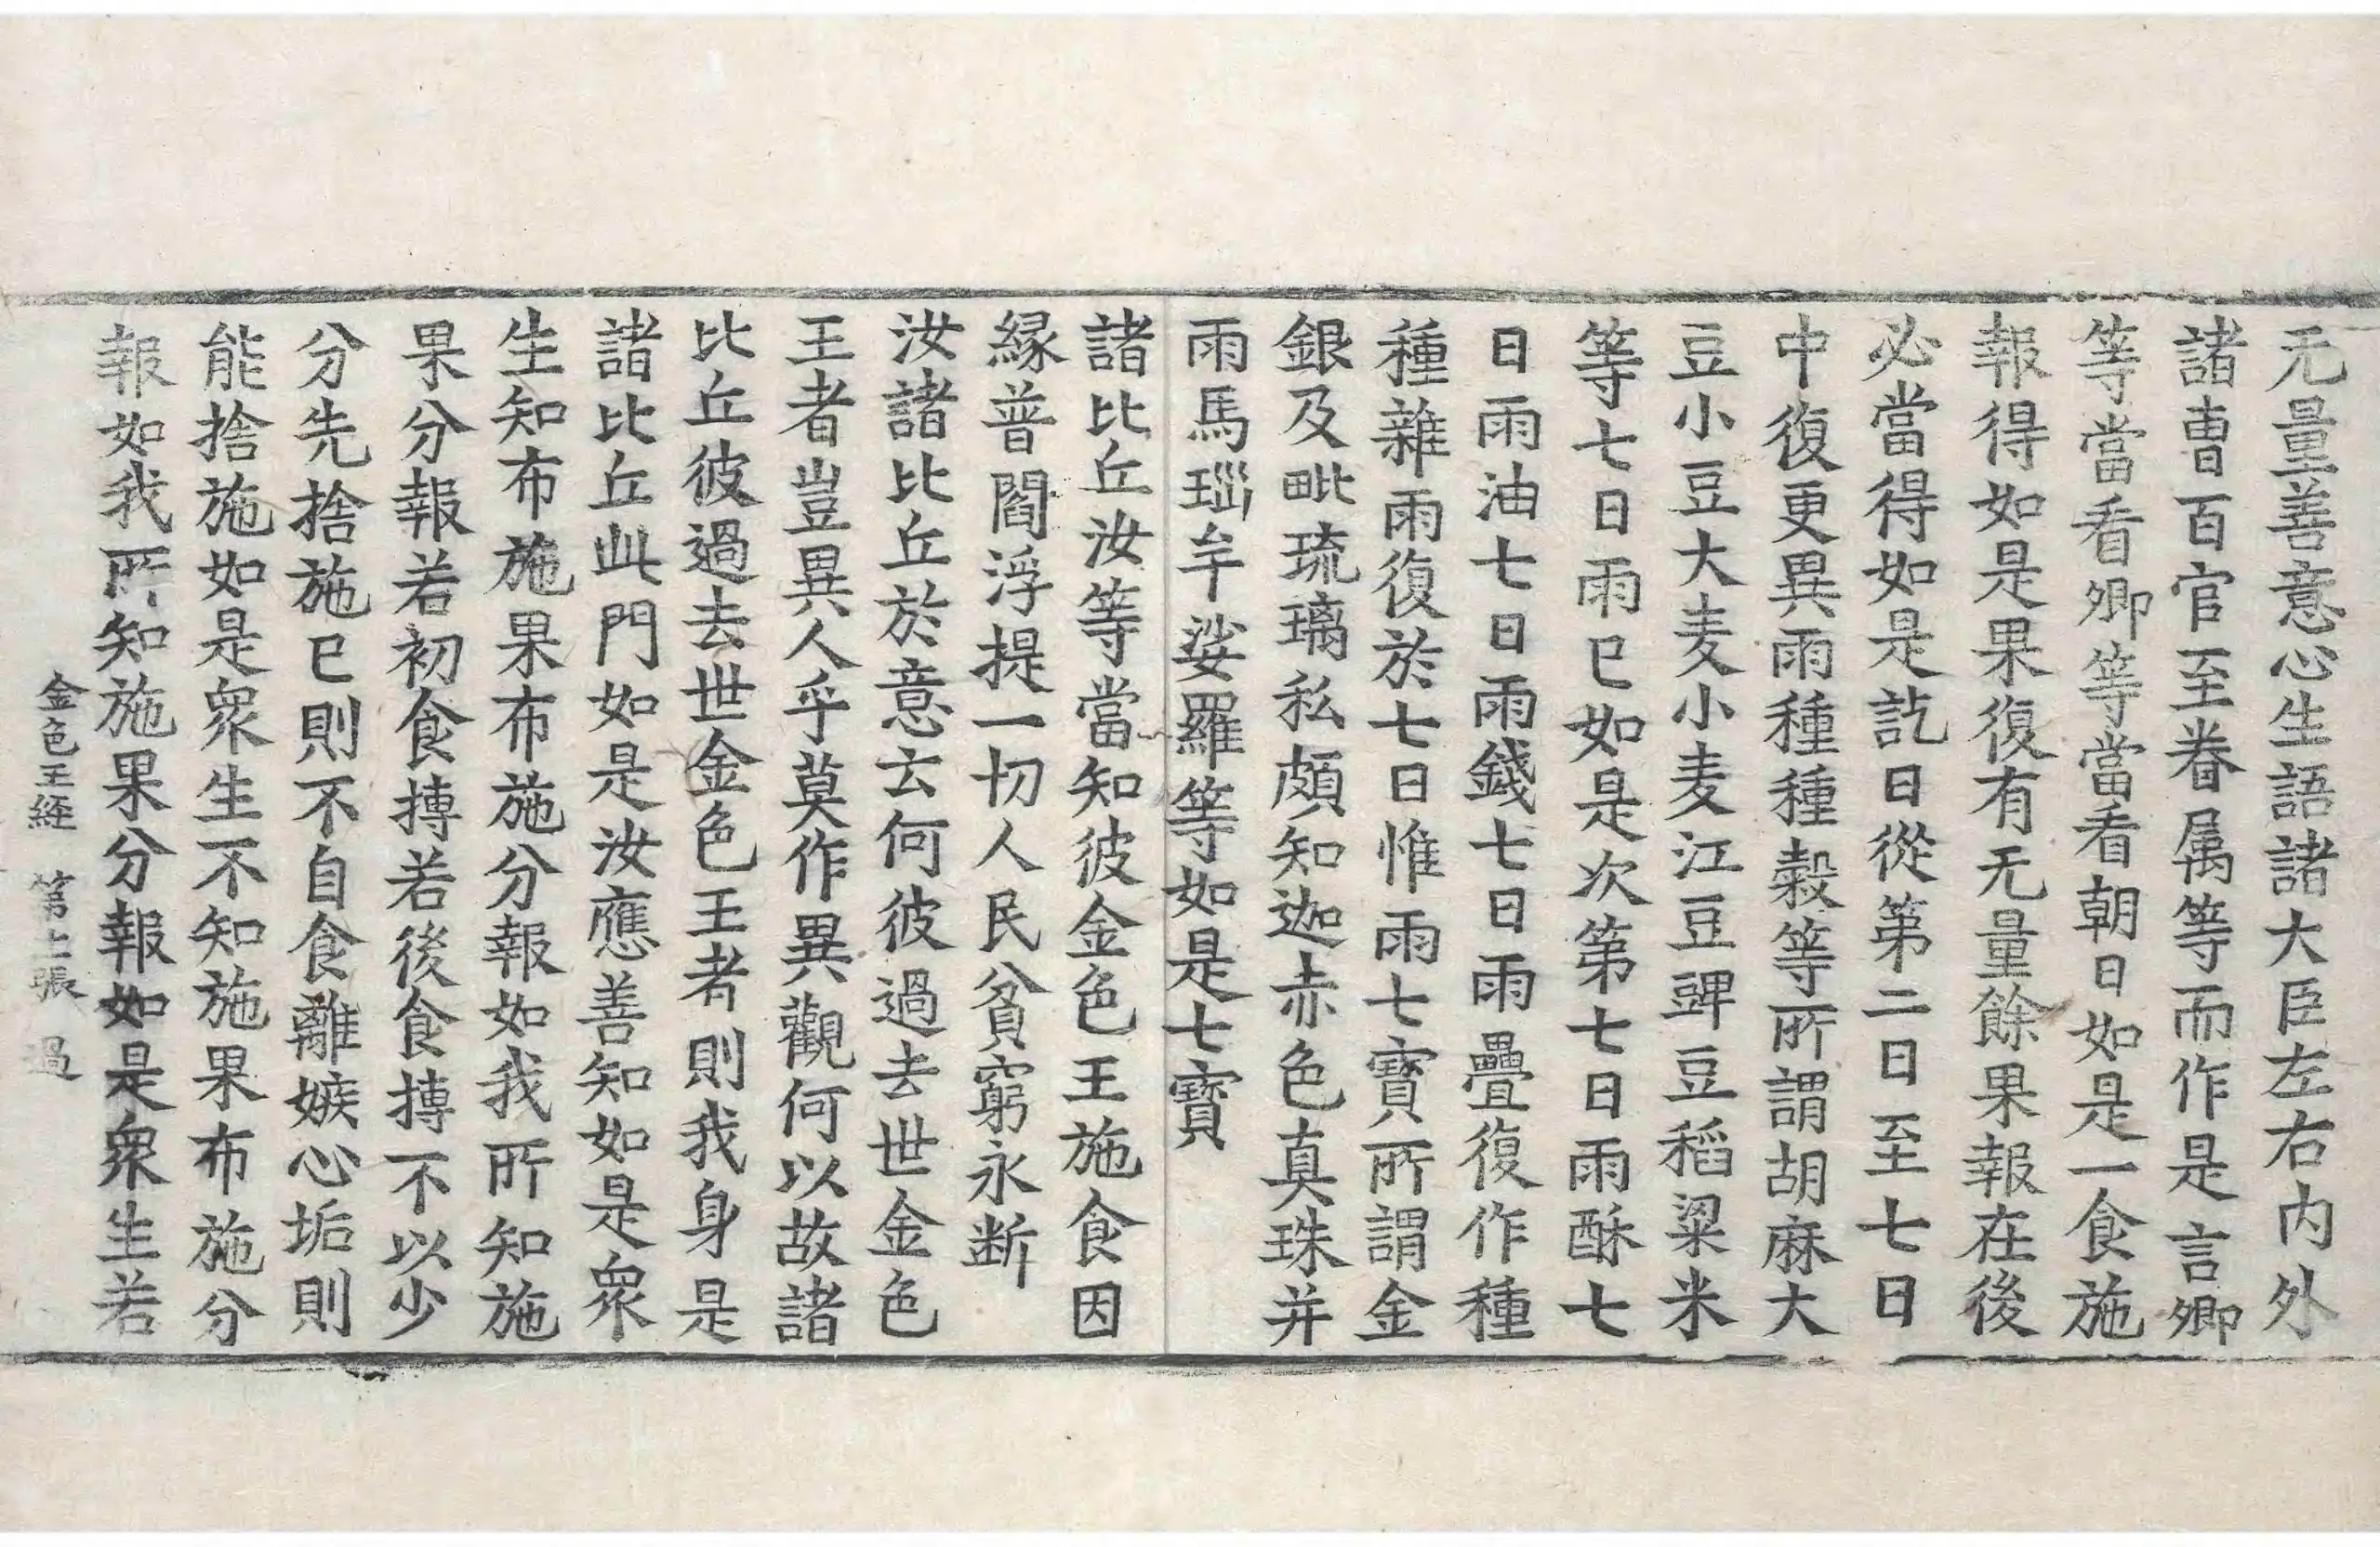 无量善意心生語諸大臣左右内外
諸曺百官至眷属等而作是言卿
等當看卿等當看朝日如是一食施
報得如是果復有无量餘果報在後
必當得如是訖日從第二日至七日
中復更異雨種種穀等所謂胡麻大
豆小豆大麦小麦江豆豍豆稻粱米
等七日雨已如是次第七日雨酥七
日雨油七日雨錢七日雨疊復作種
種雜雨復於七日惟雨七寶所謂金
銀及毗琉璃私頗知迦赤色真珠并
雨馬瑙牟娑羅等如是七寶
諸比丘汝等當知彼金色王施食因
縁普閻浮提一切人民貧窮永断
汝諸比丘於意云何彼過去世金色
王者豈異人乎莫作異觀何以故諸
比丘彼過去世金色王者則我身是
諸比丘此門如是汝應善知如是衆
生知布施果布施分報如我所知施
果分報若初食摶若後食摶不以少
分先捨施已則不自食離嫉心垢則
能捨施如是衆生不知施果布施分
報如我所知施果分報如是衆生若
金色王経 第 張 過